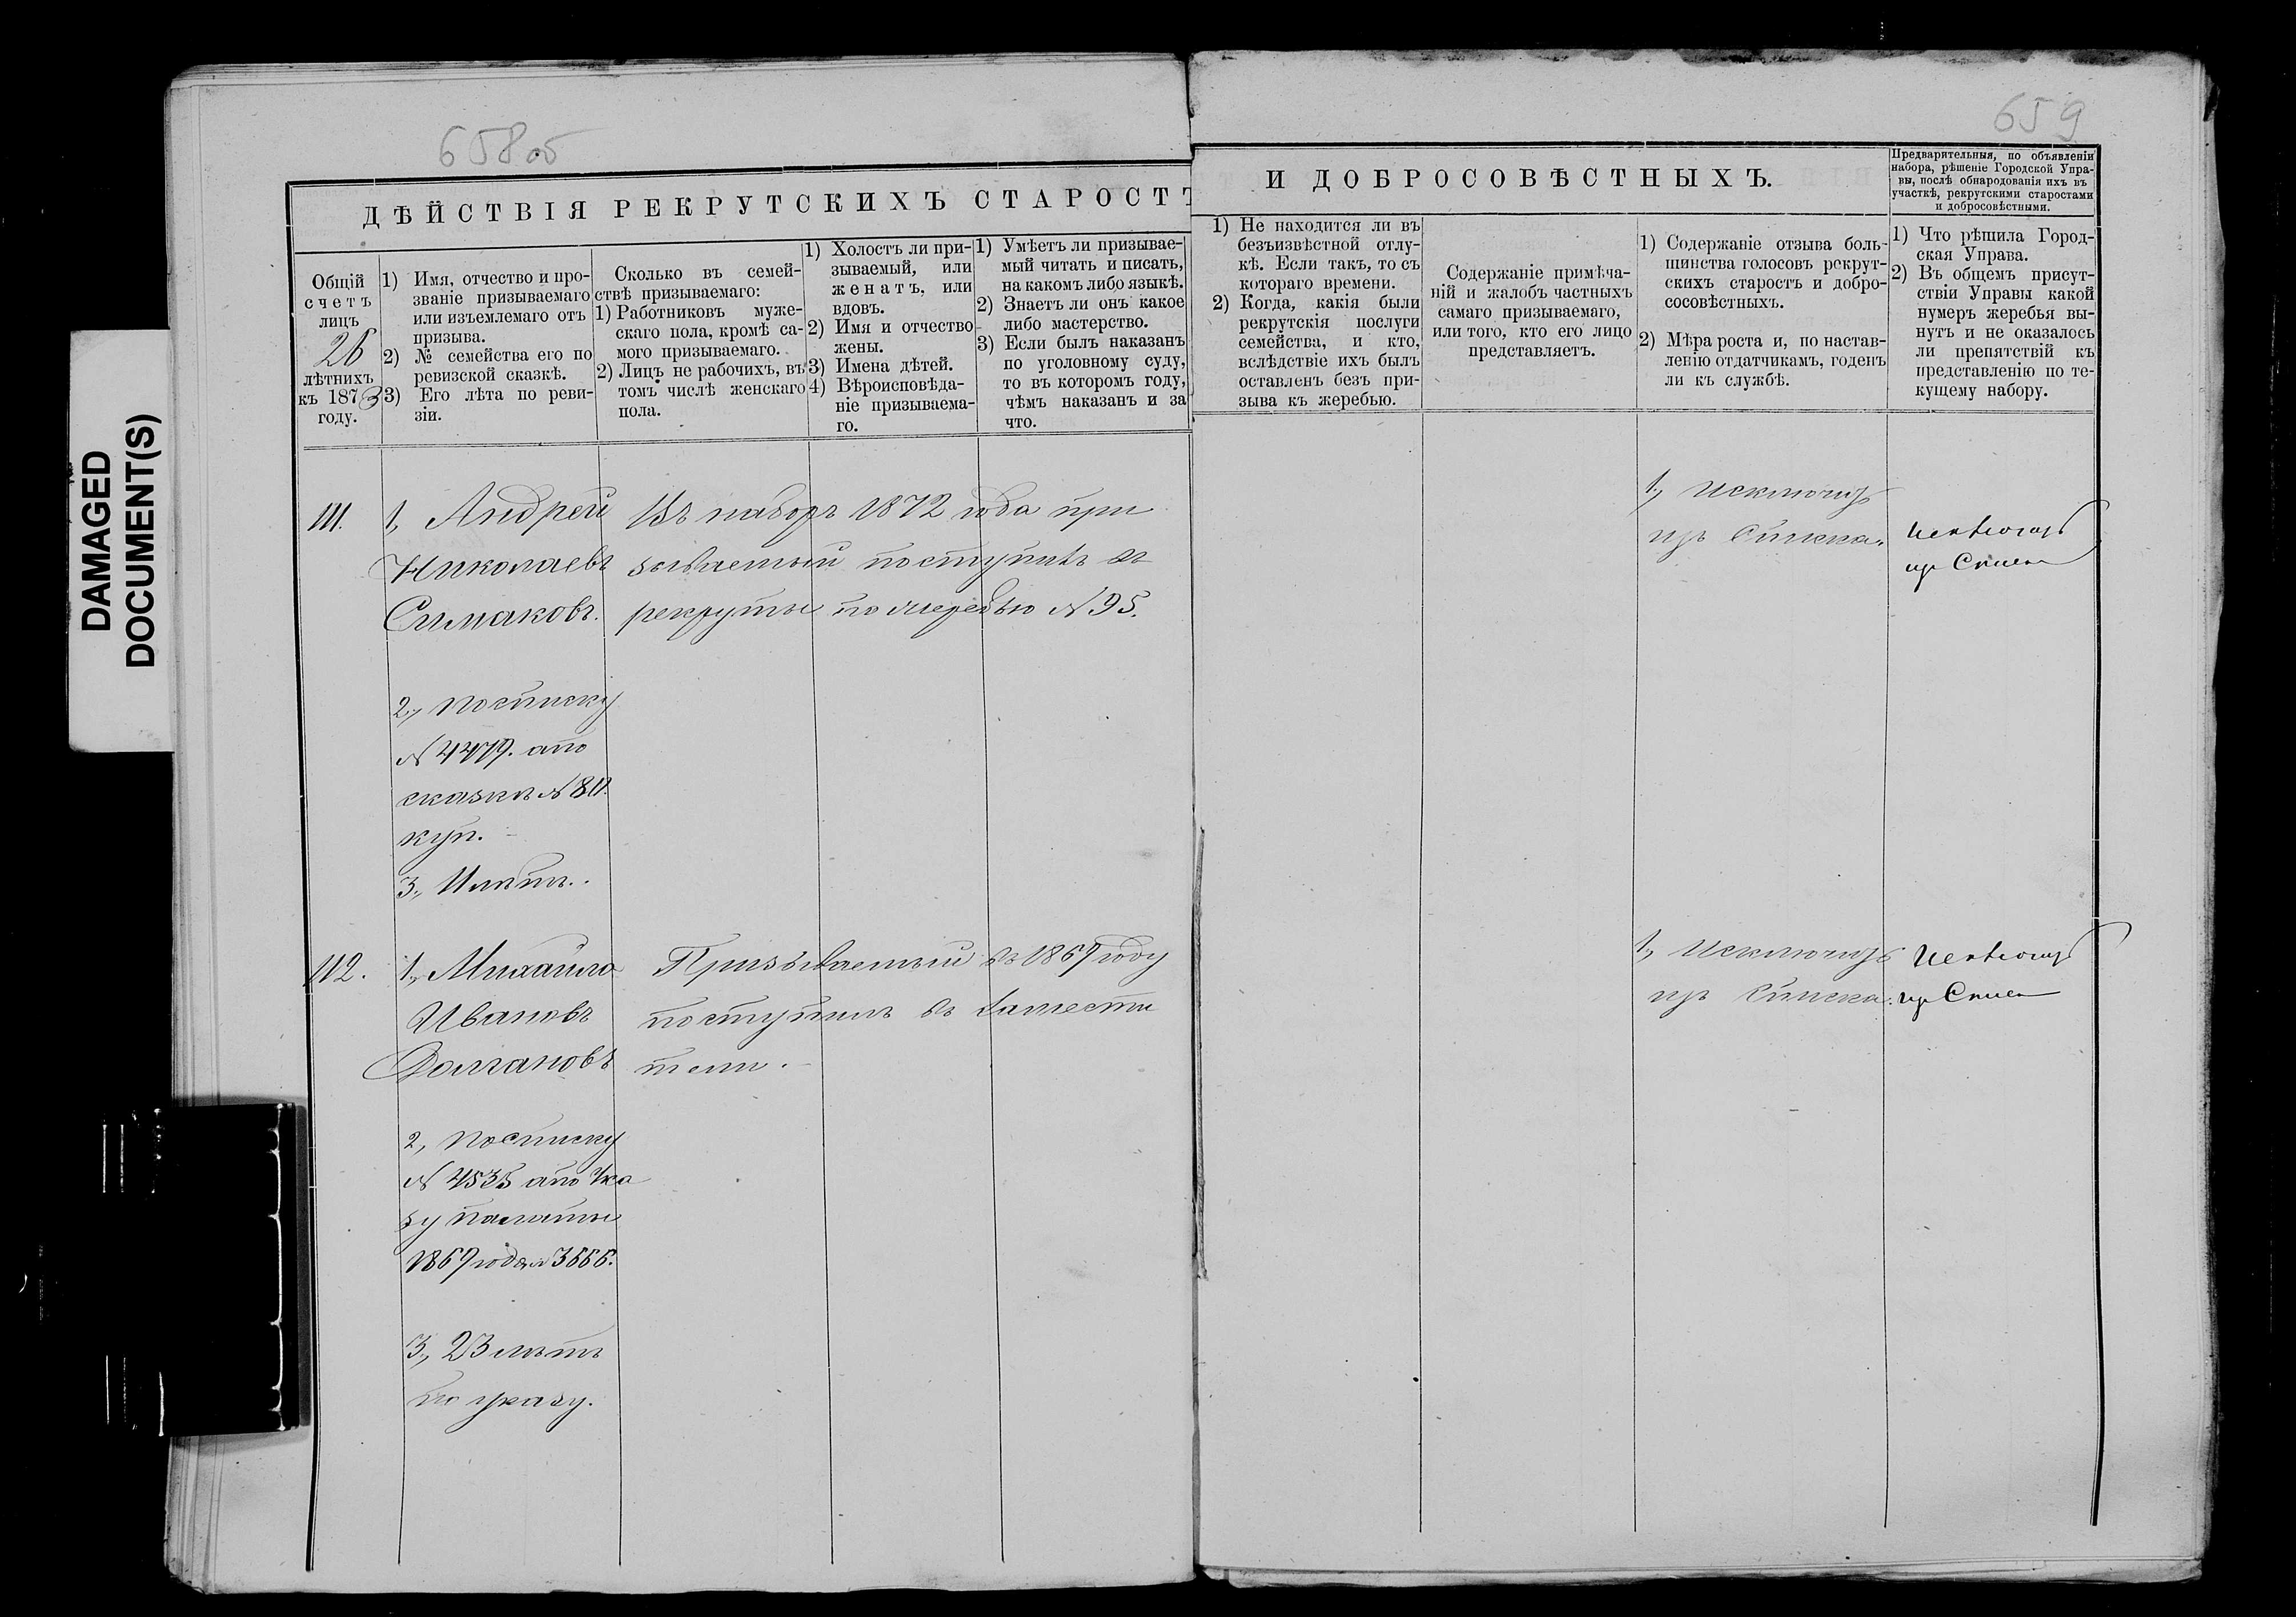 DAMAGED
DOCUMENT(S)
658 об
659
ДѢЙСТВІЯ РЕКРУТСКИХЪ СТАРОСТЪ
И ДОБРОСОВѢСТНЫХЪ.
Предварительныя, по объявленіи
набора, рѣшеніе Городской Упра-
вы, послѣ обнародованія ихъ въ
участкѣ, рекрутскими старостами
и добросовѣстными.
Общій
счетъ
лицъ
26
лѣтнихъ
къ 1873
году.
1) Имя, отчество и про-
званіе призываемаго
или изъемлемаго отъ
призыва.
2) № семейства его по
ревизской сказкѣ.
3) Его лѣта по реви-
зіи.
Сколько въ семей-
ствѣ призываемаго:
1) Работниковъ муже-
скаго пола, кромѣ са-
мого призываемаго.
2) Лицъ не рабочихъ, въ
томъ числѣ женскаго
пола.
1) Холостъ ли при-
зываемый, или
женатъ, или
вдовъ.
2) Имя и отчество
жены.
3) Имена дѣтей.
4) Вѣроисповѣда-
ніе призываема-
го.
1) Умѣетъ ли призывае-
мый читать и писать,
на какомъ либо языкѣ.
2) Знаетъ ли онъ какое
либо мастерство.
3) Если былъ наказанъ
по уголовному суду,
то въ которомъ году,
чѣмъ наказанъ и за
что.
1) Не находится ли въ
безъизвѣстной отлу-
кѣ. Если такъ, то съ
котораго времени.
2) Когда, какія были
рекрутскія послуги
семейства, и кто,
вслѣдствіе ихъ былъ
оставленъ безъ при-
зыва къ жеребью.
Содержаніе примѣча-
ній и жалобъ частныхъ
самаго призываемаго,
или того, кто его лицо
представляетъ.
1) Содержаніе отзыва боль-
шинства голосовъ рекрут-
скихъ старостъ и добро-
сосовѣстныхъ.
2) Мѣра роста и, по настав-
ленію отдатчикамъ, годенъ
ли къ службѣ.
1) Что рѣшила Город-
ская Управа.
2) Въ общемъ присут-
ствіи Управы какой
нумеръ жеребья вы-
нутъ и не оказалось
ли препятствій къ
представленію по те-
кущему набору.
111. 1, Андрей
Николаевъ
Симаковъ.
Въ наборъ 1872 года при
зываемый поступилъ въ
рекруты по жеребью № 95.
1, Исключить
изъ списка.
Исключить
изъ Списка
2, По списку
№ 4479. а по
сказкѣ № 811.
куп.
3, 11 лѣтъ.
112. 1, Михайло
Ивановъ
Долгановъ
Призываемый въ 1869 году
поступилъ въ замести
тели.
1, Исключить
изъ списка.
Исключить
изъ Списка
2, По списку
№ 4535 а по Ука
зу палаты
1869 года № 3666.
3, 23 лѣтъ
по указу.